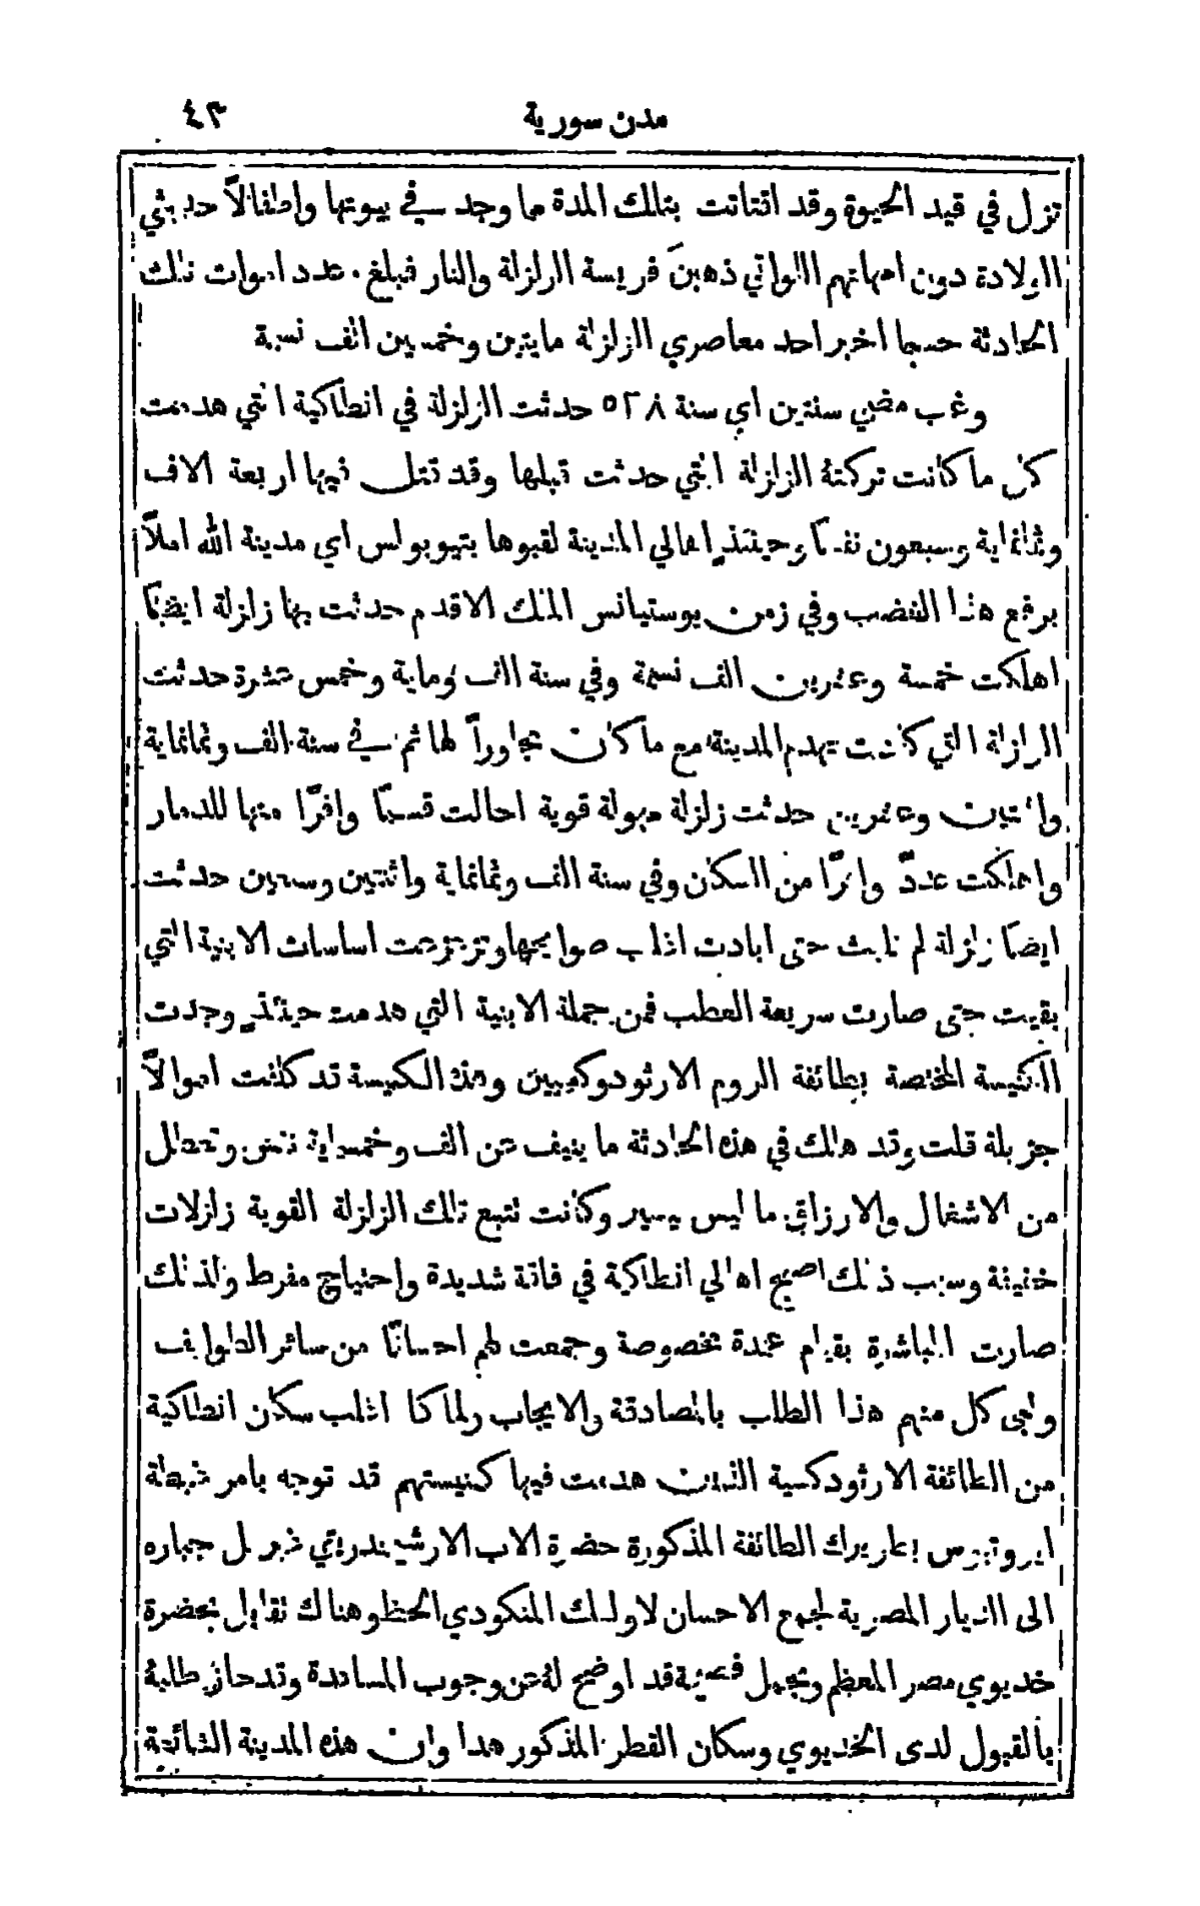 مدن سورية ٤٣
تزل في قيد الحيوة وقد اقتاتت بتلك المدة مما وجد في بيوتها واطفالاً حديثي
الولادة دون امهاتهم اللواتي ذهبنَ فريسة الزلزلة والنار فبلغ عدد اموات تلك
الحادثة حسبما اخبر احد معاصري الزلزلة مايتين وخمسين الف نسمة
وغب مضي سنتين اي سنة ٥٢٨ حدثت الزلزلة في انطاكية التي هدمت
كل ما كانت تركتهُ الزلزلة التي حدثت قبلها وقد قتل فيها اربعة الاف
وثمانماية وسبعون نفساً وحينئذٍ اهالي المدينة لقبوها بتيوبولس اي مدينة الله املاً
برفع هذا الغضب وفي زمن يوستيانس الملك الاقدم حدثت بها زلزلة ايضاً
اهلكت خمسة وعشرين الف نسمة وفي سنة الف وماية وخمس عشرة حدثت
الزلزلة التي كادت تهدم المدينة مع ما كان مجاوراً لها ثم في سنة الف وثمانماية
واثنتين وعشرين حدثت زلزلة مهولة قوية احالت قسماً وافرًا منها للدمار
واهلكت عددًا وافرًا من السكان وفي سنة الف وثمانماية واثنتين وسبعين حدثت
ايضاً زلزلة لم تلبث حتى ابادت اغلب صوايحها وتزعزعت اساسات الابنية التي
بقيت حتى صارت سريعة العطب فمن جملة الابنية التي هدمت حينئذٍ وجدت
الكنيسة المختصة بطائفة الروم الارثودوكسيين وهذه الكنيسة قد كلفت اموالاً
جزيلة قلت وقد هلك في هذه الحادثة ما ينيف عن الف وخمسماية نفس وتعطل
من الاشغال والارزاق ما ليس بيسير وكانت تتبع تلك الزلزلة القوية زلزلات
خفيفة وسبب ذلك اصبح اهالي انطاكية في فاقة شديدة واحتياج مفرط ولذلك
صارت المباشرة بقيام عمدة مخصوصة وجمعت لهم احسانًا من سائر الطوايف
ولبى كل منهم هذا الطلب بالمصادقة والايجاب ولما كا اغلب سكان انطاكية
من الطائفة الارثودكسية الذين هدمت فيها كنيستهم قد توجه بامر غبطة
ايروثيوس بطريرك الطائفة المذكورة حضرة الاب الارشيمندريتي غبريل جباره
الى الديار المصرية لجمع الاحسان لاولئك المنكودي الحظ وهناك تقابل بحضرة
خديوي مصر المعظم وبجميل قد اوضح لهُ عن وجوب المساعدة وقد حاز طلبهُ
بالقبول لدى الخديوي وسكان القطر المذكور هذا وان هذه المدينة الشائعة